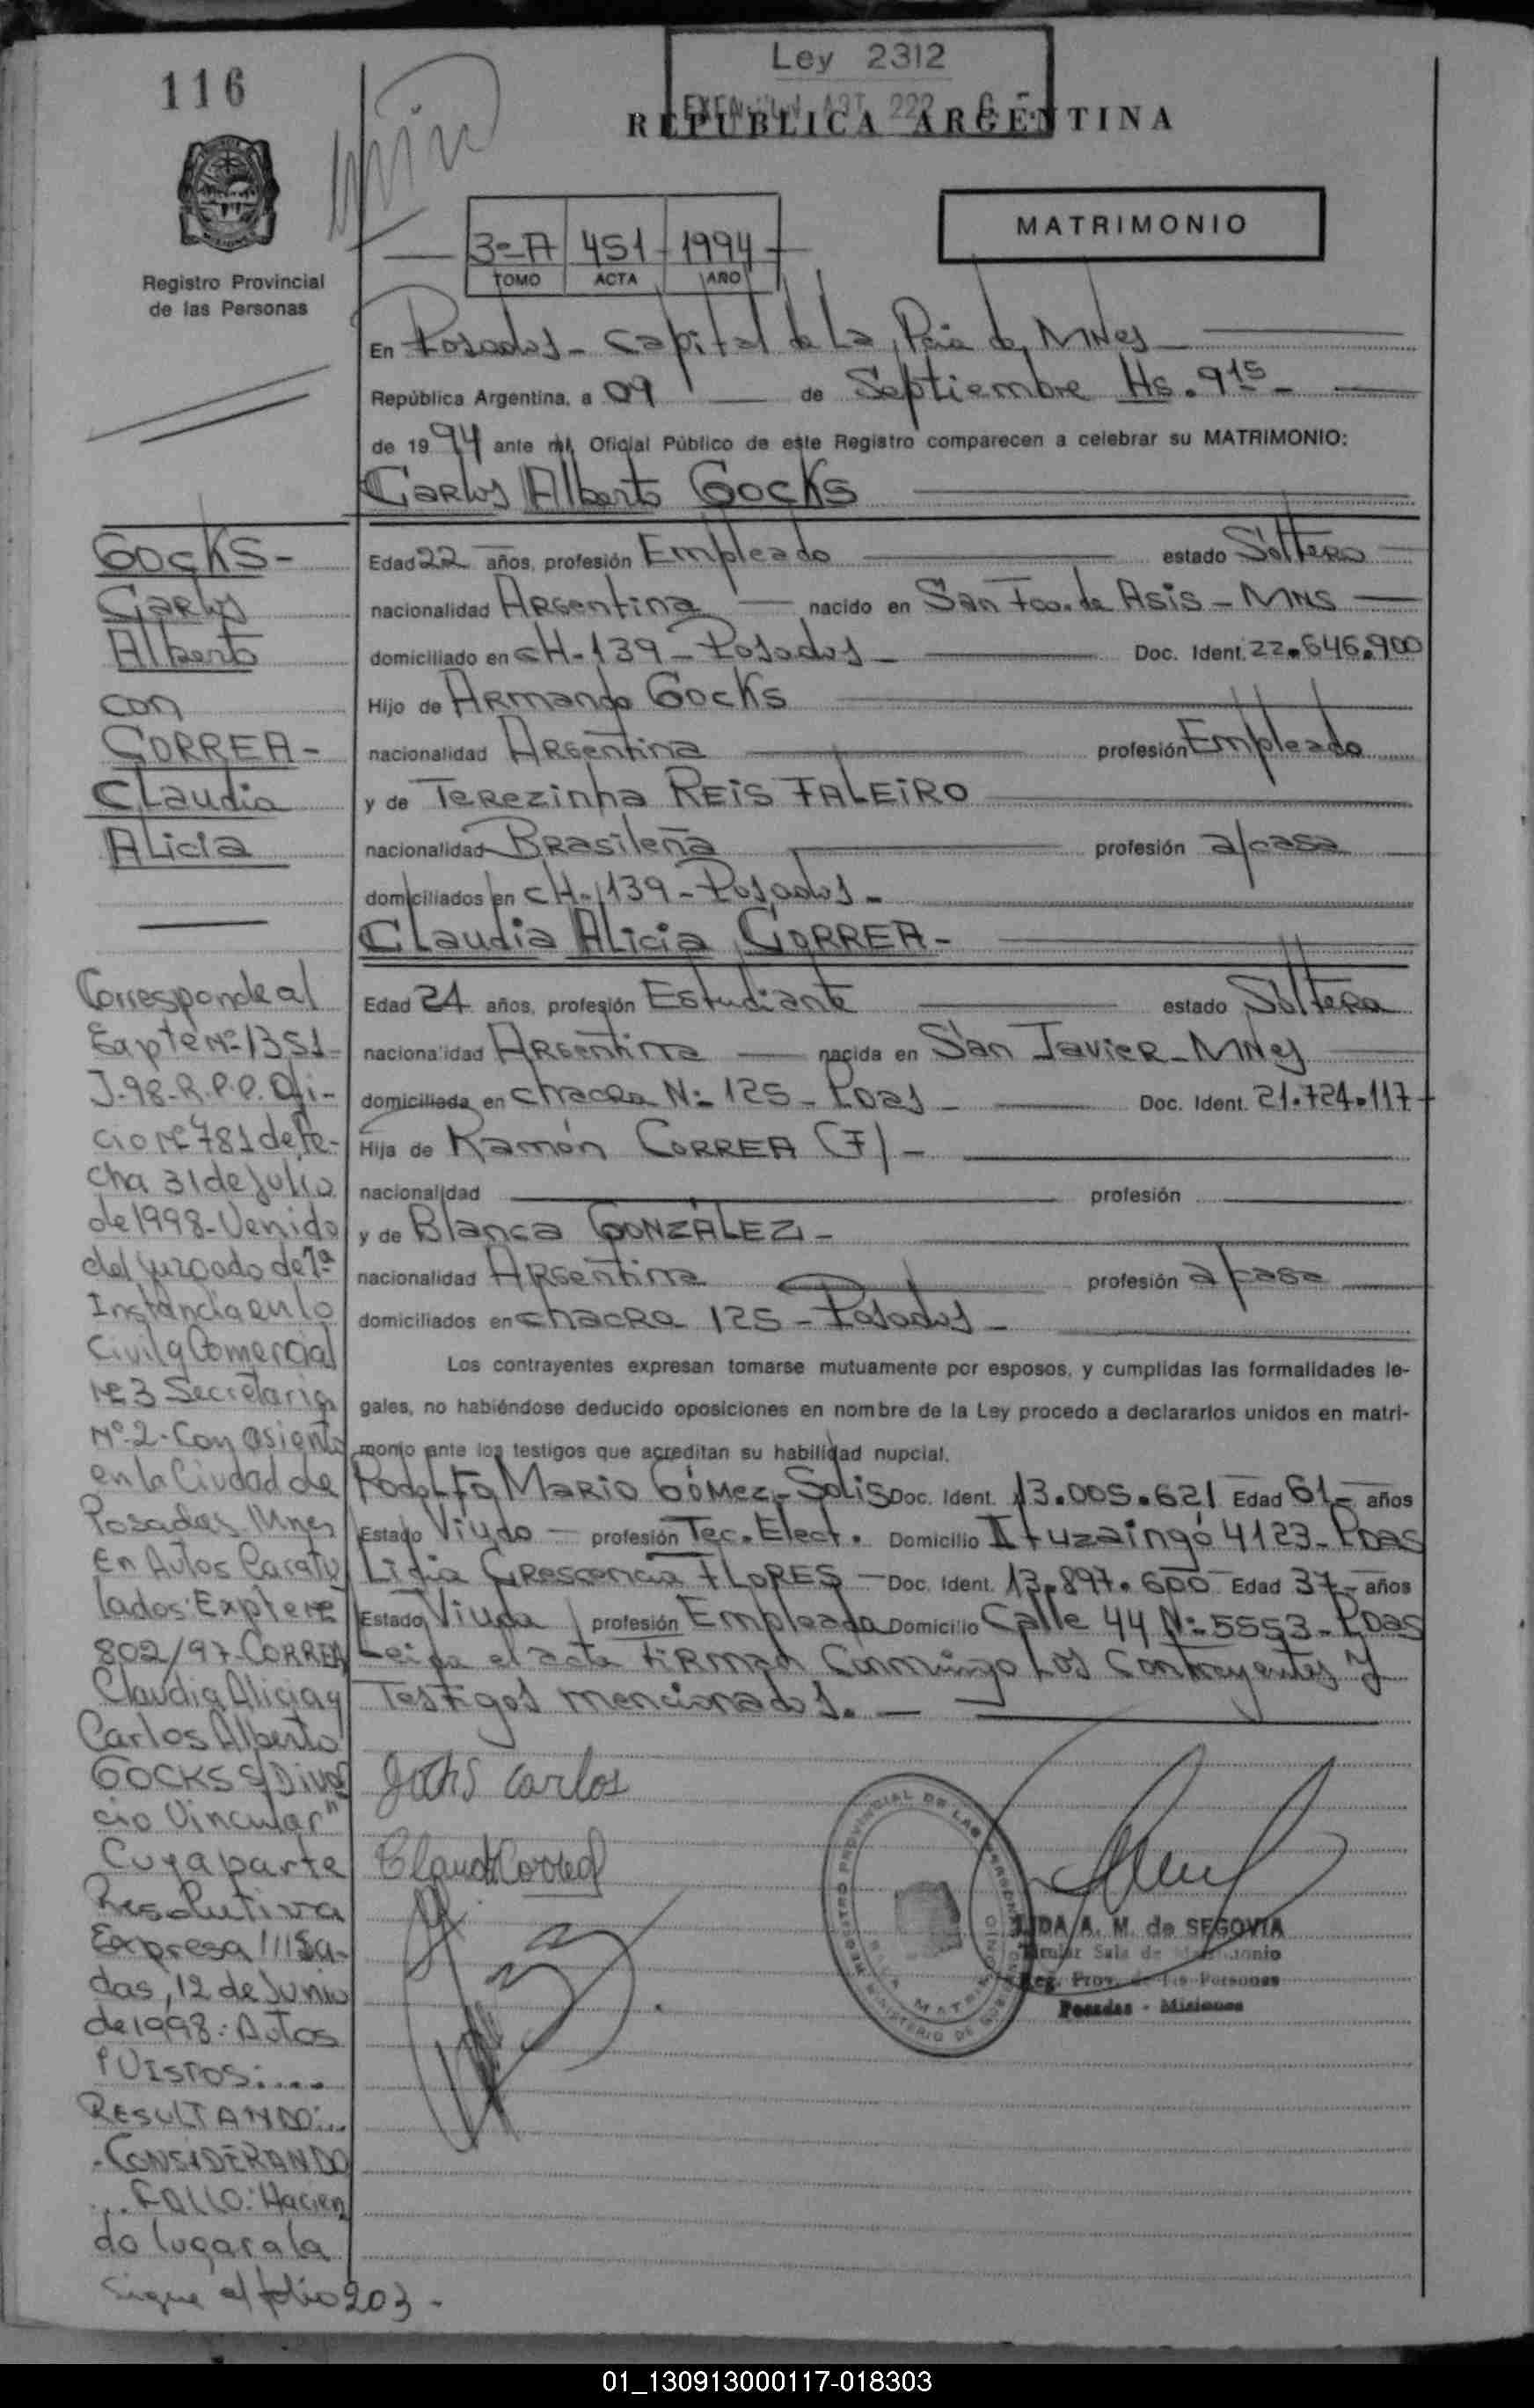 116
Ley 2312
REPUBLICA ARGENTINA
MATRIMONIO
3=A 451 1994
TOMO ACTA AÑO
Registro Provincial
de las Personas
En Posadas - Capital de La Pcia de MNes
República Argentina, a 09 de Septiembre Hs. 9 15 -
de 1994 ante mí, Oficial Público de este Registro comparecen a celebrar su MATRIMONIO:
Carlos Alberto GOCKS
Edad 22 años, profesión Empleado estado Soltero
nacionalidad Argentina nacido en San Fco. de Asis - MNS
domiciliado en CH - 139 - Posadas - Doc. Ident. 22.646.900
Hijo de Armando Gocks
nacionalidad Argentina profesión Empleado
y de Terezinha REIS FALEIRO
nacionalidad Brasileña profesión a/casa
domiciliados en CH - 139 - Posadas -
Claudia Alicia CORREA -
Edad 24 años, profesión Estudiante estado Soltera
nacionalidad Argentina nacida en San Javier - MNes
domiciliada en Chacra N= 125 - Pdas - Doc. Ident. 21.724.117
Hija de Ramón CORREA (F) -
nacionalidad profesión
y de Blanca GONZÁLEZ -
nacionalidad Argentina profesión a/casa
domiciliados en Chacra 125 - Posadas -
Los contrayentes expresan tomarse mutuamente por esposos, y cumplidas las formalidades le-
gales, no habiéndose deducido oposiciones en nombre de la Ley procedo a declararlos unidos en matri-
monio ante los testigos que acreditan su habilidad nupcial.
Rodolfo Mario GÓMEZ - Solis Doc. Ident. 13.005.621 Edad 61 - años
Estado Viudo - profesión Tec. Elect. Domicilio Ituzaingó 4123 - Pdas
Lidia Crescencia FLORES - Doc. Ident. 13.897.600 Edad 37 - años
Estado Viuda profesión Empleada Domicilio Calle 44 N= 5553 - Pdas
Leida el acta firman Conmingo Los Contrayentes y
Testigos mencionados. -
GOCKS -
Carlos
Alberto
con
CORREA -
Claudia
Alicia
Corresponde al
Expte Nº 1351-
J-98-R.P.P. Ofi-
cio Nº 781 de fe-
cha 31 de Julio
de 1998 - Venido
del Juzgado de 1ª
Instancia en lo
Civil y Comercial
Nº 3 Secretaria
Nº 2 - Con asiento
en la Ciudad de
Posadas Mnes
En Autos Caratu
lados: Expte Nº
802/97 - CORREA
Claudia Alicia y
Carlos Alberto
GOCKS S/Divor
cio Vincular"
Cuya parte
Resolutiva
Expresa
das, 12 de Junio
de 1998: Autos
VISTOS: ....
RESULTANDO: ...
- CONSIDERANDO
... FALLO: "Hacien
do lugar a la
Sigue al folio 203 -
Gocks Carlos
Claudia Correa
REGISTRO PROVINCIAL DE LAS PERSONAS
SALA MATRIMONIO
MINISTERIO DE GOBIERNO
LIDA A. M. de SEGOVIA
Titular Sala de Matrimonio
Reg. Prov. de las Personas
Posadas - Misiones
01_130913000117-018303